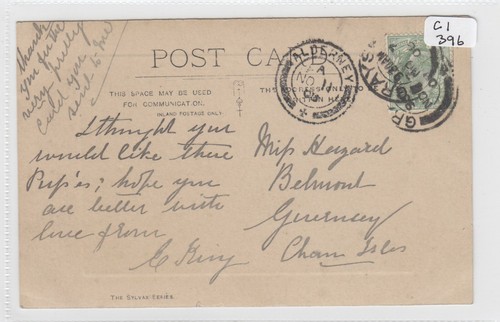 C1
396
thank
you for the
very pretty
Card you
send to me
POST CARD
THIS SPACE MAY BE USED FOR
COMMUNICATION
INLAND POSTAGE ONLY.
THE ADDRESS ONLY TO
BE WRITTEN HERE
ALDERNEY
A
NO
GRAYS
I thought you
would like these
Pup'es; hope you
are better with
love from
C King
Miss
Belmont
Guernsey
Chan Isles
THE SYLVAN SERIES.